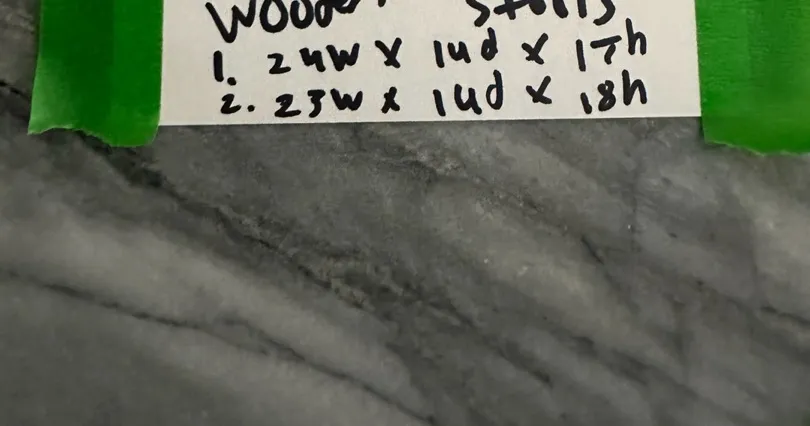 Wooden
1. 24W x 14d x 17h
2. 23W x 14d x 18h